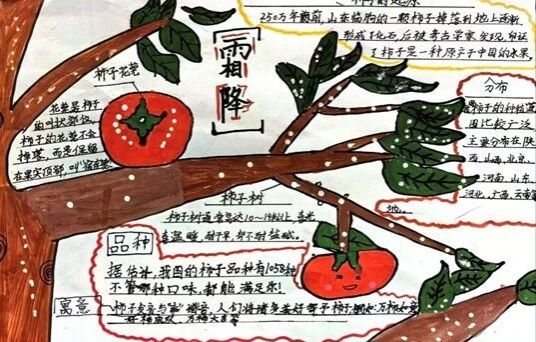 250万年最前,山东临朐的一颗柿子掉落到地上逐渐
形成了化石,后被考古学家发现,印证
了柿子是一种原产于中国的水果。
霜降
柿子花萼
花萼是柿子
的叶状部位,
柿子的花萼不会
掉落,而是保留
在果实顶部,叫
分布
柿子的种植范
围比较广泛
主要分布在陕
西,山西,北京,
河南,山东,
河北,广西,云南等
地。
柿子树
柿子树通常高达10~14米以上,喜光
喜温暖,耐干旱,却不耐盐碱。
品种
据估计,我国的柿子品种有1058种
不管哪种口味,都能满足你!
寓意
柿子发音与"事"谐音,人们将诸多美好寄予柿子,比如:万柿如意
好柿成双,万柿大吉等